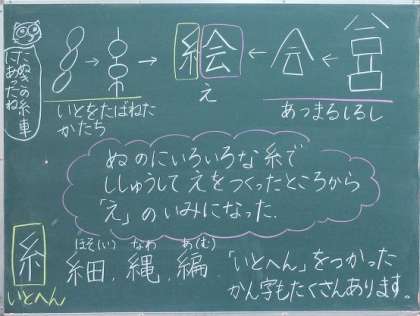 たぬきの糸車
にあったね
糸 → 絵 ← 会 ←
え
いとをたばねた
かたち
あつまるしるし
ぬのにいろいろな糸で
ししゅうして えをつくったところから
「え」のいみになった.
糸
いとへん
ほそ(い) なわ あ(む)
細. 縄. 編.
「いとへん」をつかった
かん字もたくさんあります。